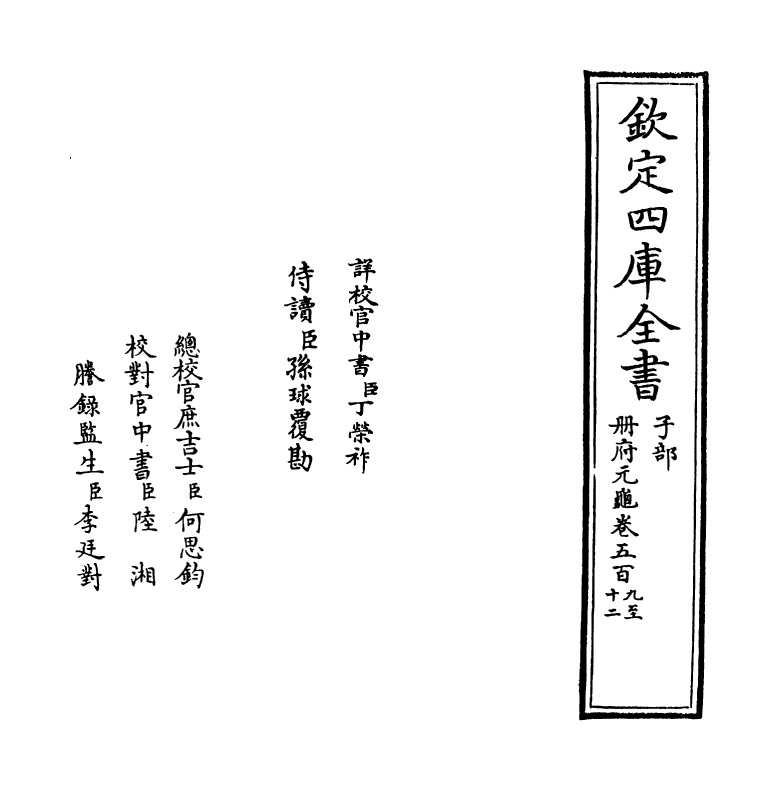 欽定四庫全書
子部
册府元龜卷五百九至十二
詳校官中書臣丁榮祚
侍讀臣孫球覆勘
總校官庶吉士臣何思鈞
校對官中書臣陸湘
謄錄監生臣李廷對